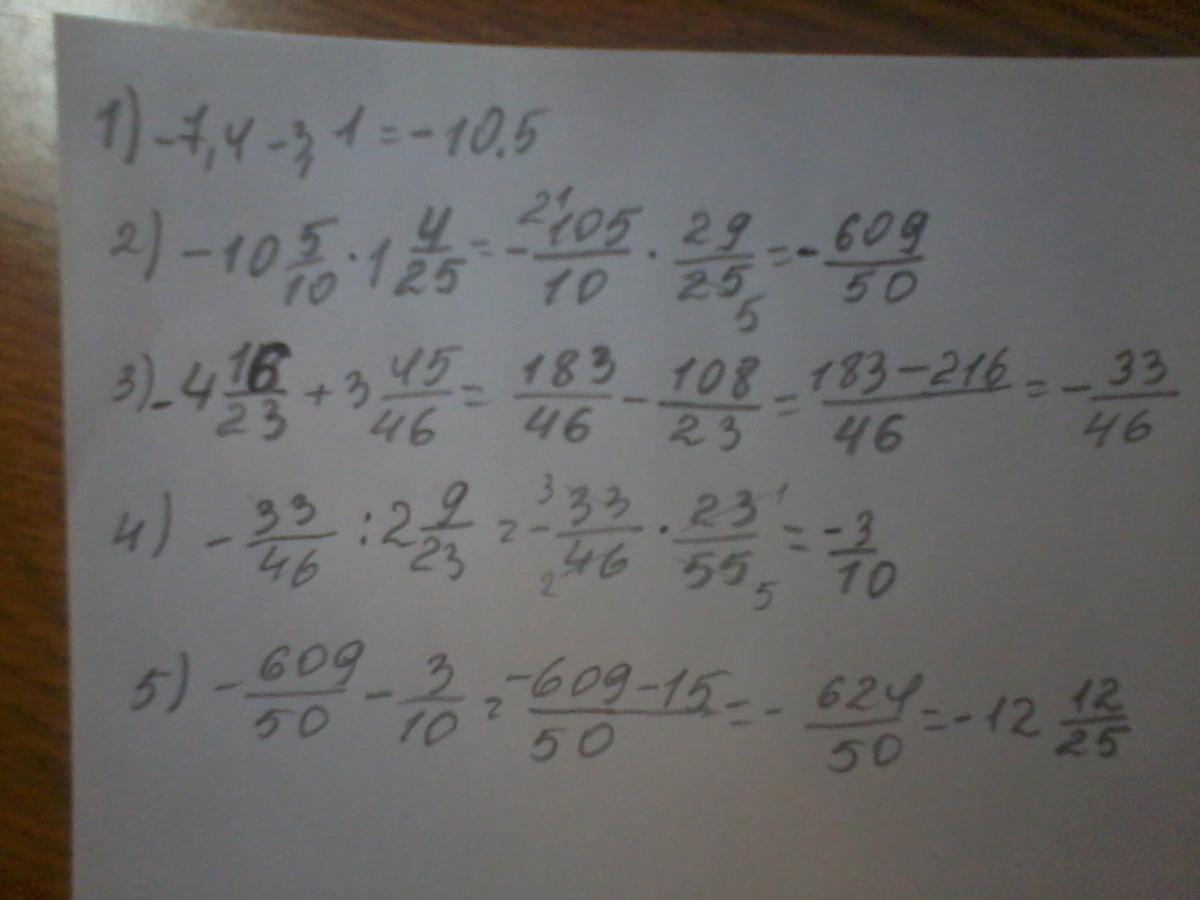 1) -7,4 - 3,1 = -10.5
2) -10 5/10 · 1 4/25 = - 21 105/10 · 29/25 5 = - 609/50
3) -4 16/23 + 3 45/46 = 183/46 - 108/23 = 183-216/46 = - 33/46
4) - 33/46 : 2 9/23 = - 3 33/46 2 · 23 1/55 5 = -3/10
5) - 609/50 - 3/10 = -609-15/50 = - 624/50 = -12 12/25